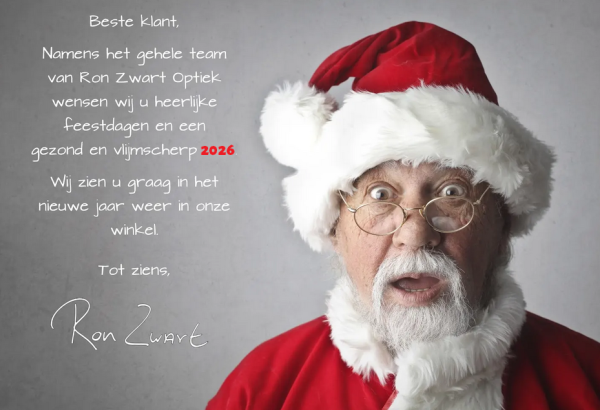 Beste klant,
Namens het gehele team
van Ron Zwart Optiek
wensen wij u heerlijke
feestdagen en een
gezond en vlijmscherp 2026
Wij zien u graag in het
nieuwe jaar weer in onze
winkel.
Tot ziens,
Ron Zwart